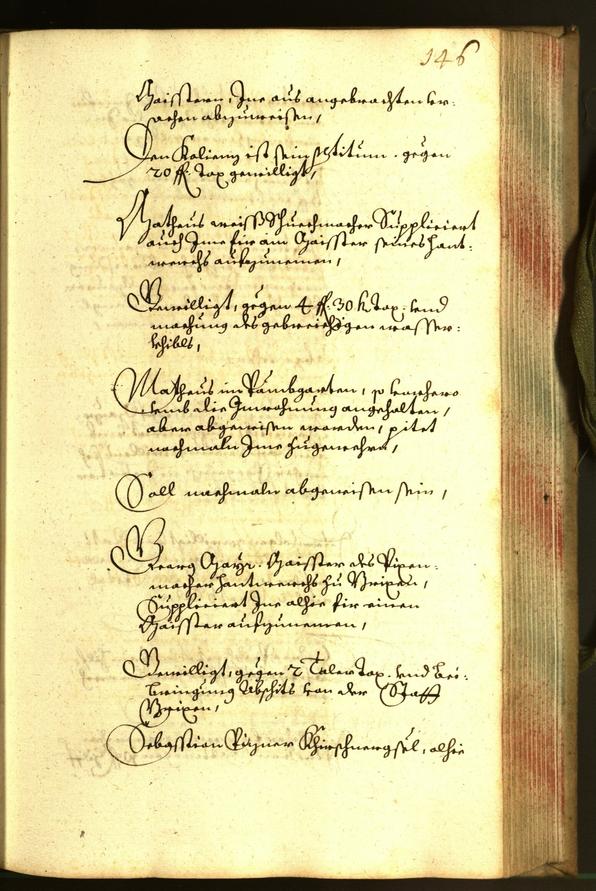 146
Maisstern, Ine aus angebrachten Vr-
sachen abzuweisen,
Den ist sein petitum. gegen
20 fl: Tax gewilligt,
Matheus weiss Schuechmacher Suppliciert
auch Ine fir ain Maisster seines hant-
werchs aufzunemen,
Bewilligt, gegen 4 fl: 30 k Tax. vnd
machung des gebreichigen wasser-
khibls,
Matheus im Paumbgarten, so vorhero
vmb die Inwohnung angehalten,
aber abgewisen worden, pitet
nachmaln Ime zugewehrn,
Soll nachmaln abgewisen sein,
Georg Mayr. Maisster des
macher hantwerchs zu Brixen,
Suppliciert Ine alhie fir einen
Maisster aufzunemen,
Bewilligt, gegen 2 Taler Tax. vnd bei-
bringung Abschits von der Statt
Brixen,
Sebasstian Khirschnergsel, alhie